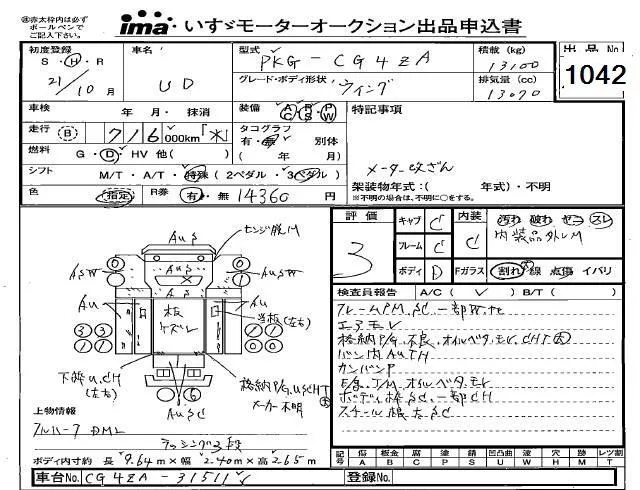 ※赤太枠内は必ず
ボールペンで
ご記入下さい。
ima いすゞモーターオークション出品申込書
初度登録
S・H・R
21/10月
車名
UD
型式
PKG-CG4ZA
グレード・ボディ形状
ウィング
積載 (kg)
13100
排気量 (cc)
13070
出品No
1042
車検 年 月・抹消
走行 B 716 000km「不」
燃料 G・D・HV 他( )
シフト M/T・A/T・特殊(2ペダル・3ペダル)
色 指定 R券 有・無 14360 円
装備 AC PS PW
タコグラフ
有・無 別体
( 年 月)
特記事項
メーター改ざん
架装物年式:( 年式)・不明
※不明の場合は、不明に○をする。
評価
3
キャブ C
フレーム C
ボディ D
内装 C
汚れ 破れ ヤニ スレ
内装品外レM
Fガラス 割れ・線 点傷 イバリ
検査員報告 A/C( ) B/T( )
エアモレ
格納P/G.不良.オイルベタ.モレ.CHT大
バン内AUTH
カンバンP
E/g.TM.オイルベタ.モレ
ボディ枠SC.一部CH
スチール根太SC
AUS
センジ脱M
AUSW
AUSW
AU
AU
板ケズレ
当板(左右)
下部U.CH
(左右)
格納P/G.USCHT大
メーカー不明
AUSC
上物情報
フルハーフ DM2
ラッシング3段
ボディ内寸約 長 9.64m×幅 2.40m×高 2.65m
記号 傷A 板金B 腐C 塗P 錆S 凹凸曲U 波W 穴H 欠M レツ割T
車台No. CG4ZA-31511
登録No.